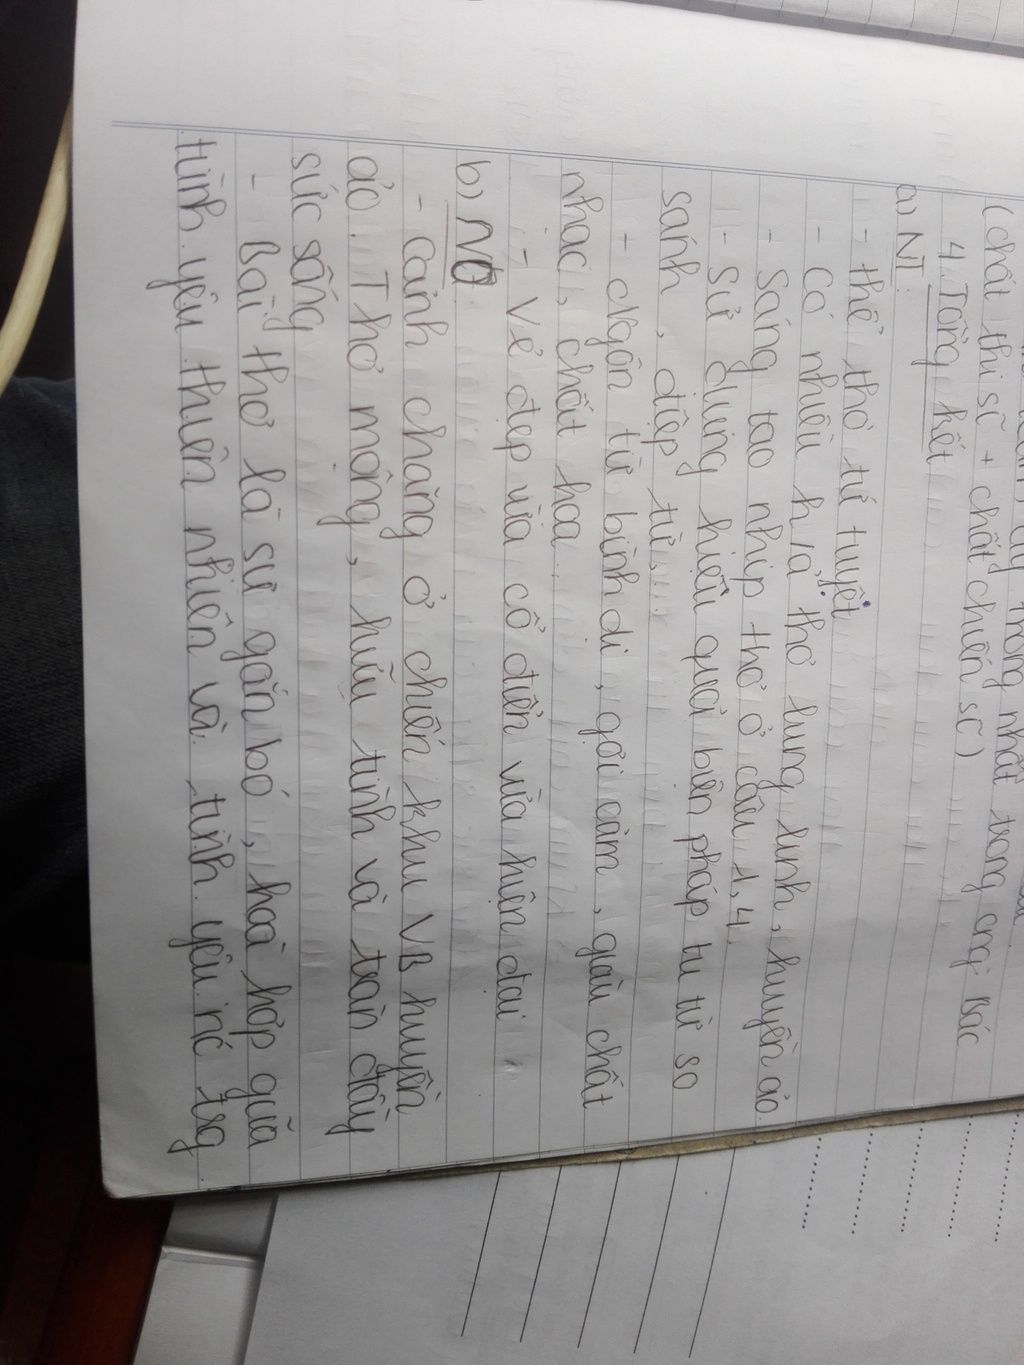 trong nhất trong cmj Bác
(chất thi sĩ + chất chiến sĩ)
4. Tổng kết
a) NT:
- thể thơ tứ tuyệt
- Có nhiều h/ả thơ lung linh, huyền ảo.
- Sáng tạo nhịp thơ ở câu 1, 4
- Sử dụng hiệu quả biện pháp tu từ so
sánh, điệp từ,...
- Ngôn từ bình dị, gợi cảm, giàu chất
nhạc, chất họa.
- Vẻ đẹp vừa cổ điển vừa hiện đại
b) ND.
- Cảnh chăng ở chiến khu VB huyền
ảo. Thơ mộng, hữu tình và tràn đầy
sức sống
- Bài thơ là sự gắn bó, hoà hợp giữa
tình yêu thiên nhiên và tình yêu nc trg